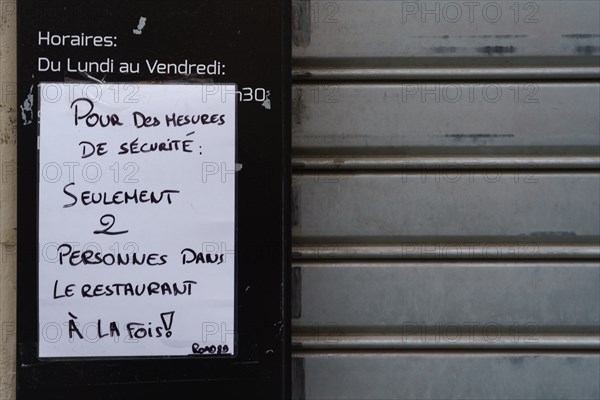 Horaires:
Du Lundi au Vendredi:
h30
POUR DES MESURES
DE SÉCURITÉ:
SEULEMENT
2
PERSONNES DANS
LE RESTAURANT
À LA FOIS!
PHOTO 12